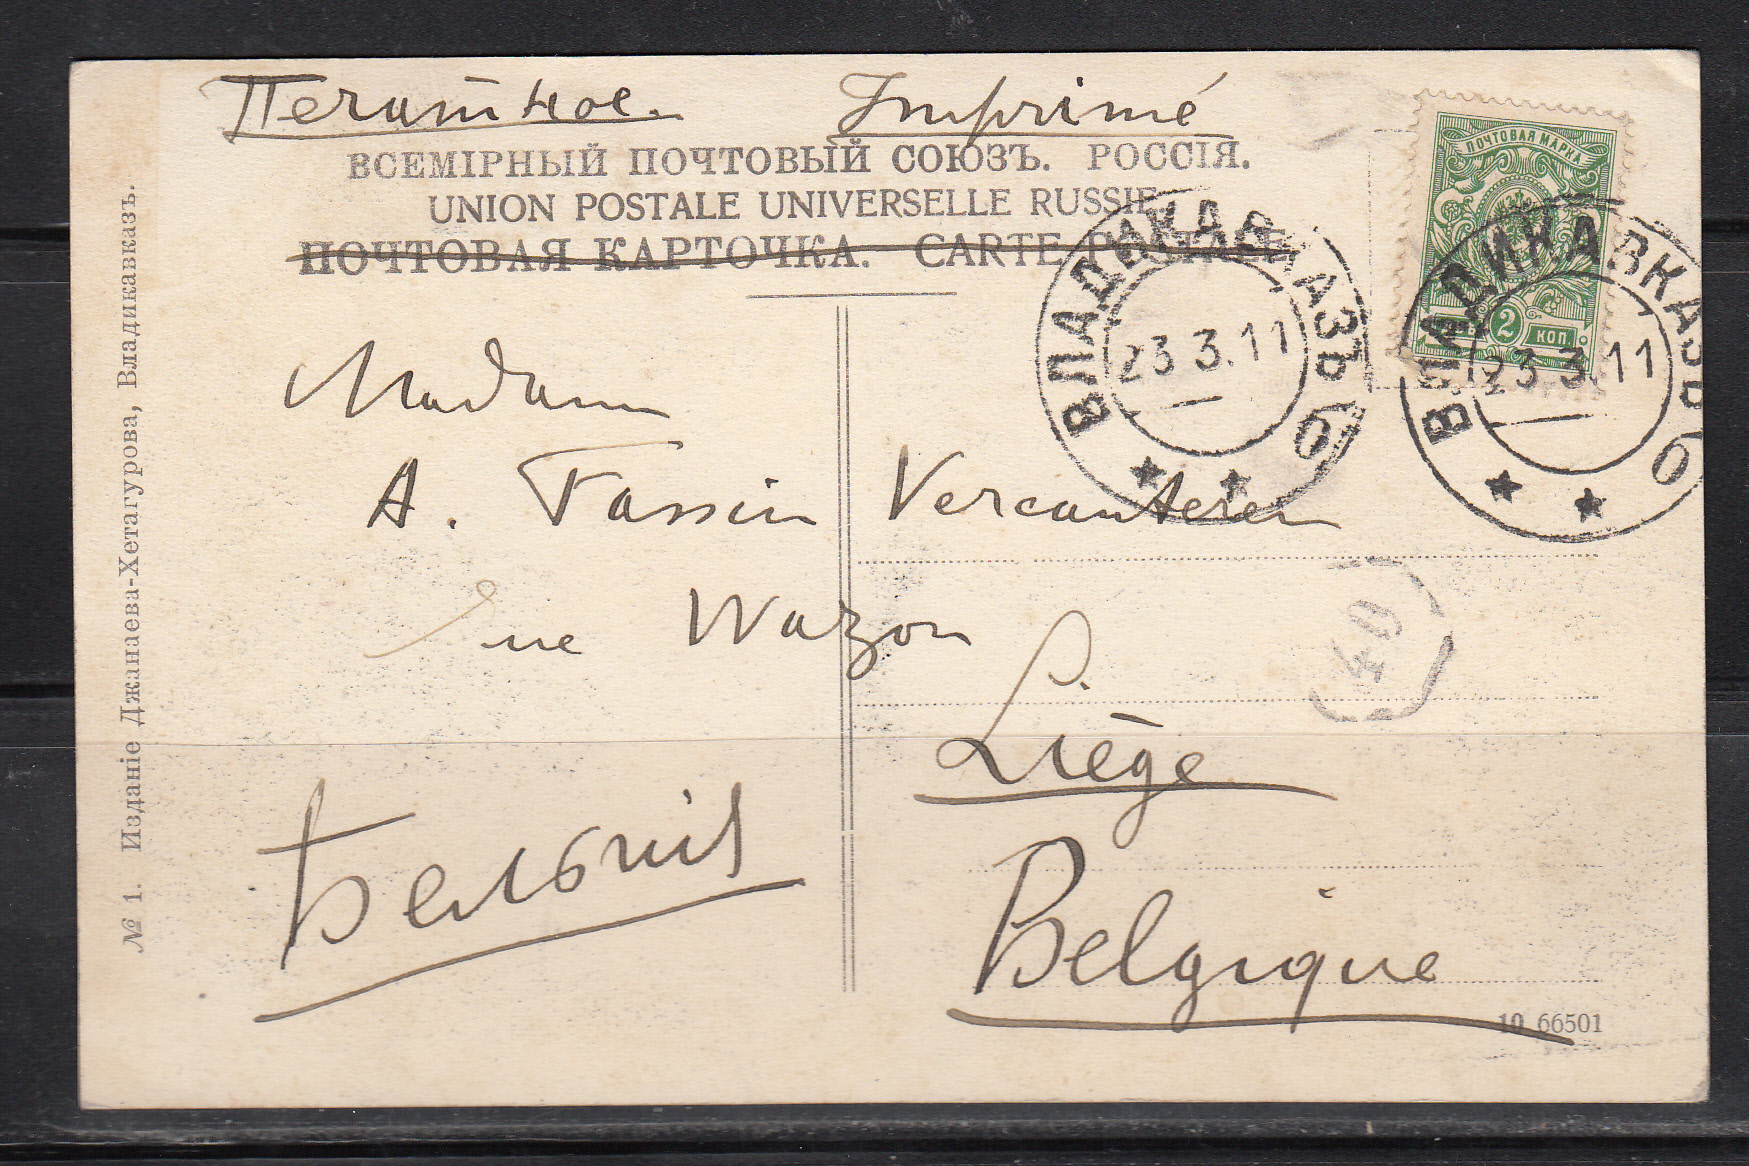 Печатное. Imprimé
ВСЕМІРНЫЙ ПОЧТОВЫЙ СОЮЗЪ. РОССІЯ.
UNION POSTALE UNIVERSELLE RUSSIE
ПОЧТОВАЯ КАРТОЧКА. CARTE POSTALE
ПОЧТОВАЯ МАРКА
2 КОП.
ВЛАДИКАВКАЗЪ
23 3.11
ВЛАДИКАВКАЗЪ
23 3.11
Madame
A. Tassin Vercauteren
rue Wazon
Liège
Бельгія
Belgique
40
№ 1. Изданіе Джанаева-Хетагурова, Владикавказъ.
10 66501